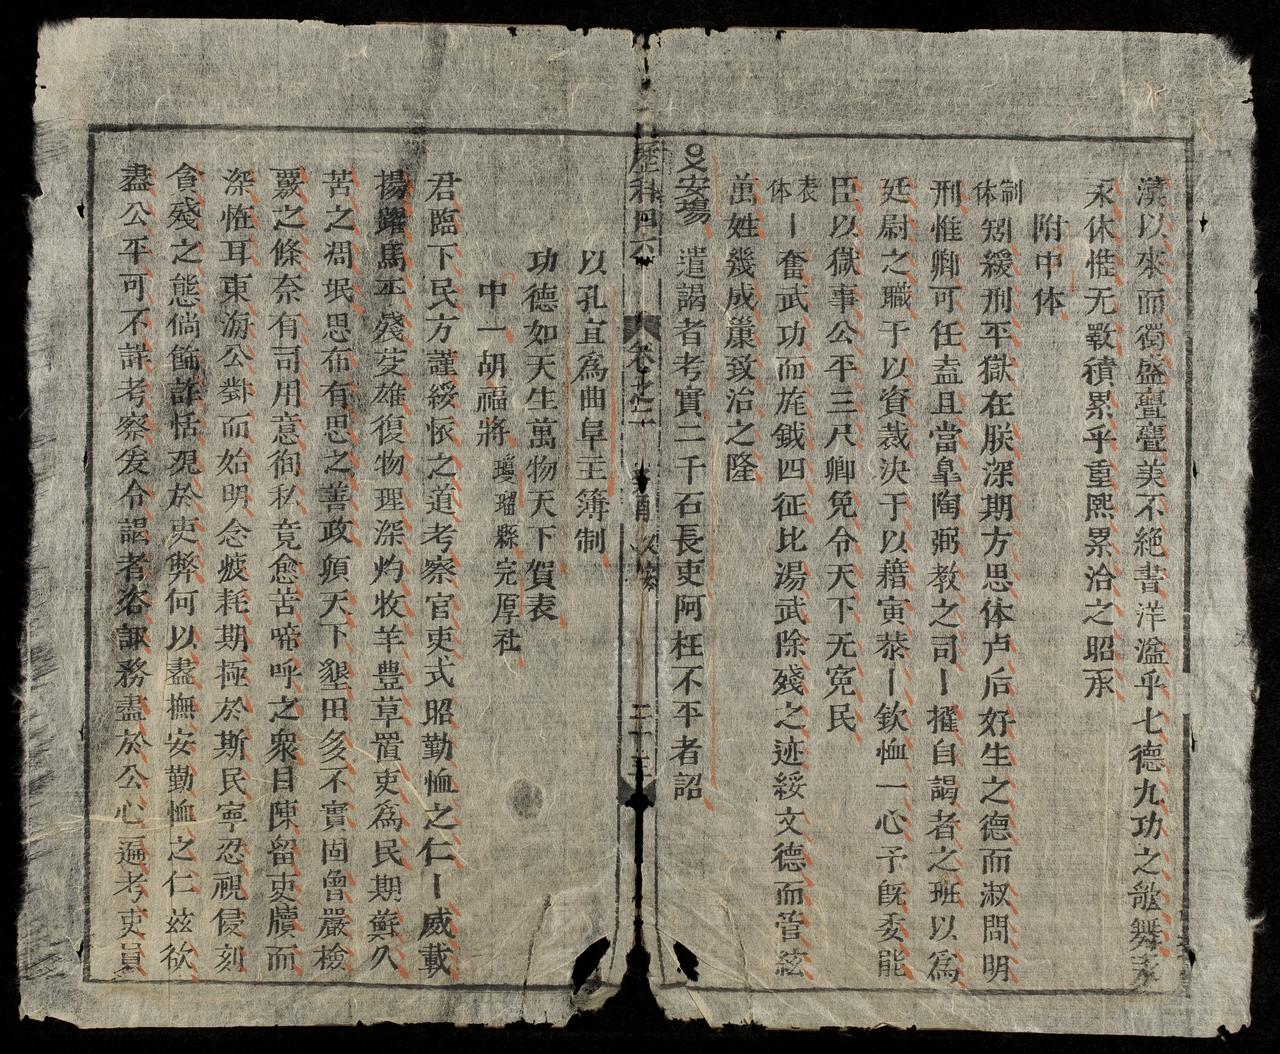 漢以來而獨盛亹亹美不絕書洋溢乎七德九功之歌舞永
永休惟无斁積累乎重熙累洽之昭承
附中体
制体矧緩刑平獄在朕深期方思体卢后好生之德而淑問明
刑惟卿可任盍且當臯陶弼教之司〡擢自謁者之班以為
廷尉之職于以資裁決于以藉寅恭〡欽恤一心予既委能
臣以獄事公平三尺卿免令天下无冤民
表体〡奮武功而旄鉞四征比湯武除殘之迹綏文德而管絃
萬姓幾成巢致治之隆
乂安塲 遣謁者考實二千石長吏阿枉不平者詔
歷科四六 卷之二 二十五
以孔宜為曲阜主簿制
功德如天生萬物天下賀表
中一胡福將 瓊瑠縣完厚社
君臨下民方謹綏怀之道考察官吏式昭勤恤之仁〡威載
揚躍馬丕殘芟雄復物理深灼牧羊豊草置吏為民期蘇久
苦之凋氓思布有思之善政頋天下墾田多不實固曾嚴檢
覈之條奈有司用意徇私竟愈苦啼呼之衆目陳留吏牘而
深恠耳東海公對而始明念疲耗期極於斯民寧忍視侵刻
貪殘之態倘餙詐恬現於吏弊何以盡撫安勤恤之仁茲欲
盡公平可不詳考察爰令謁者咨諏務盡於公心遍考吏員